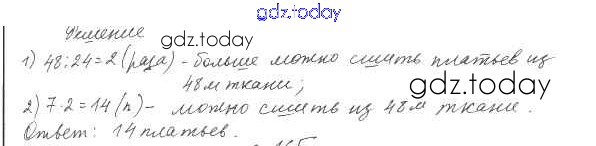 gdz.today
Решение
gdz.today
1) 48:24=2 (раза) - больше можно сшить платьев из
48м ткани;
gdz.today
2) 7·2=14 (п) - можно сшить из 48м ткани.
Ответ: 14 платьев.